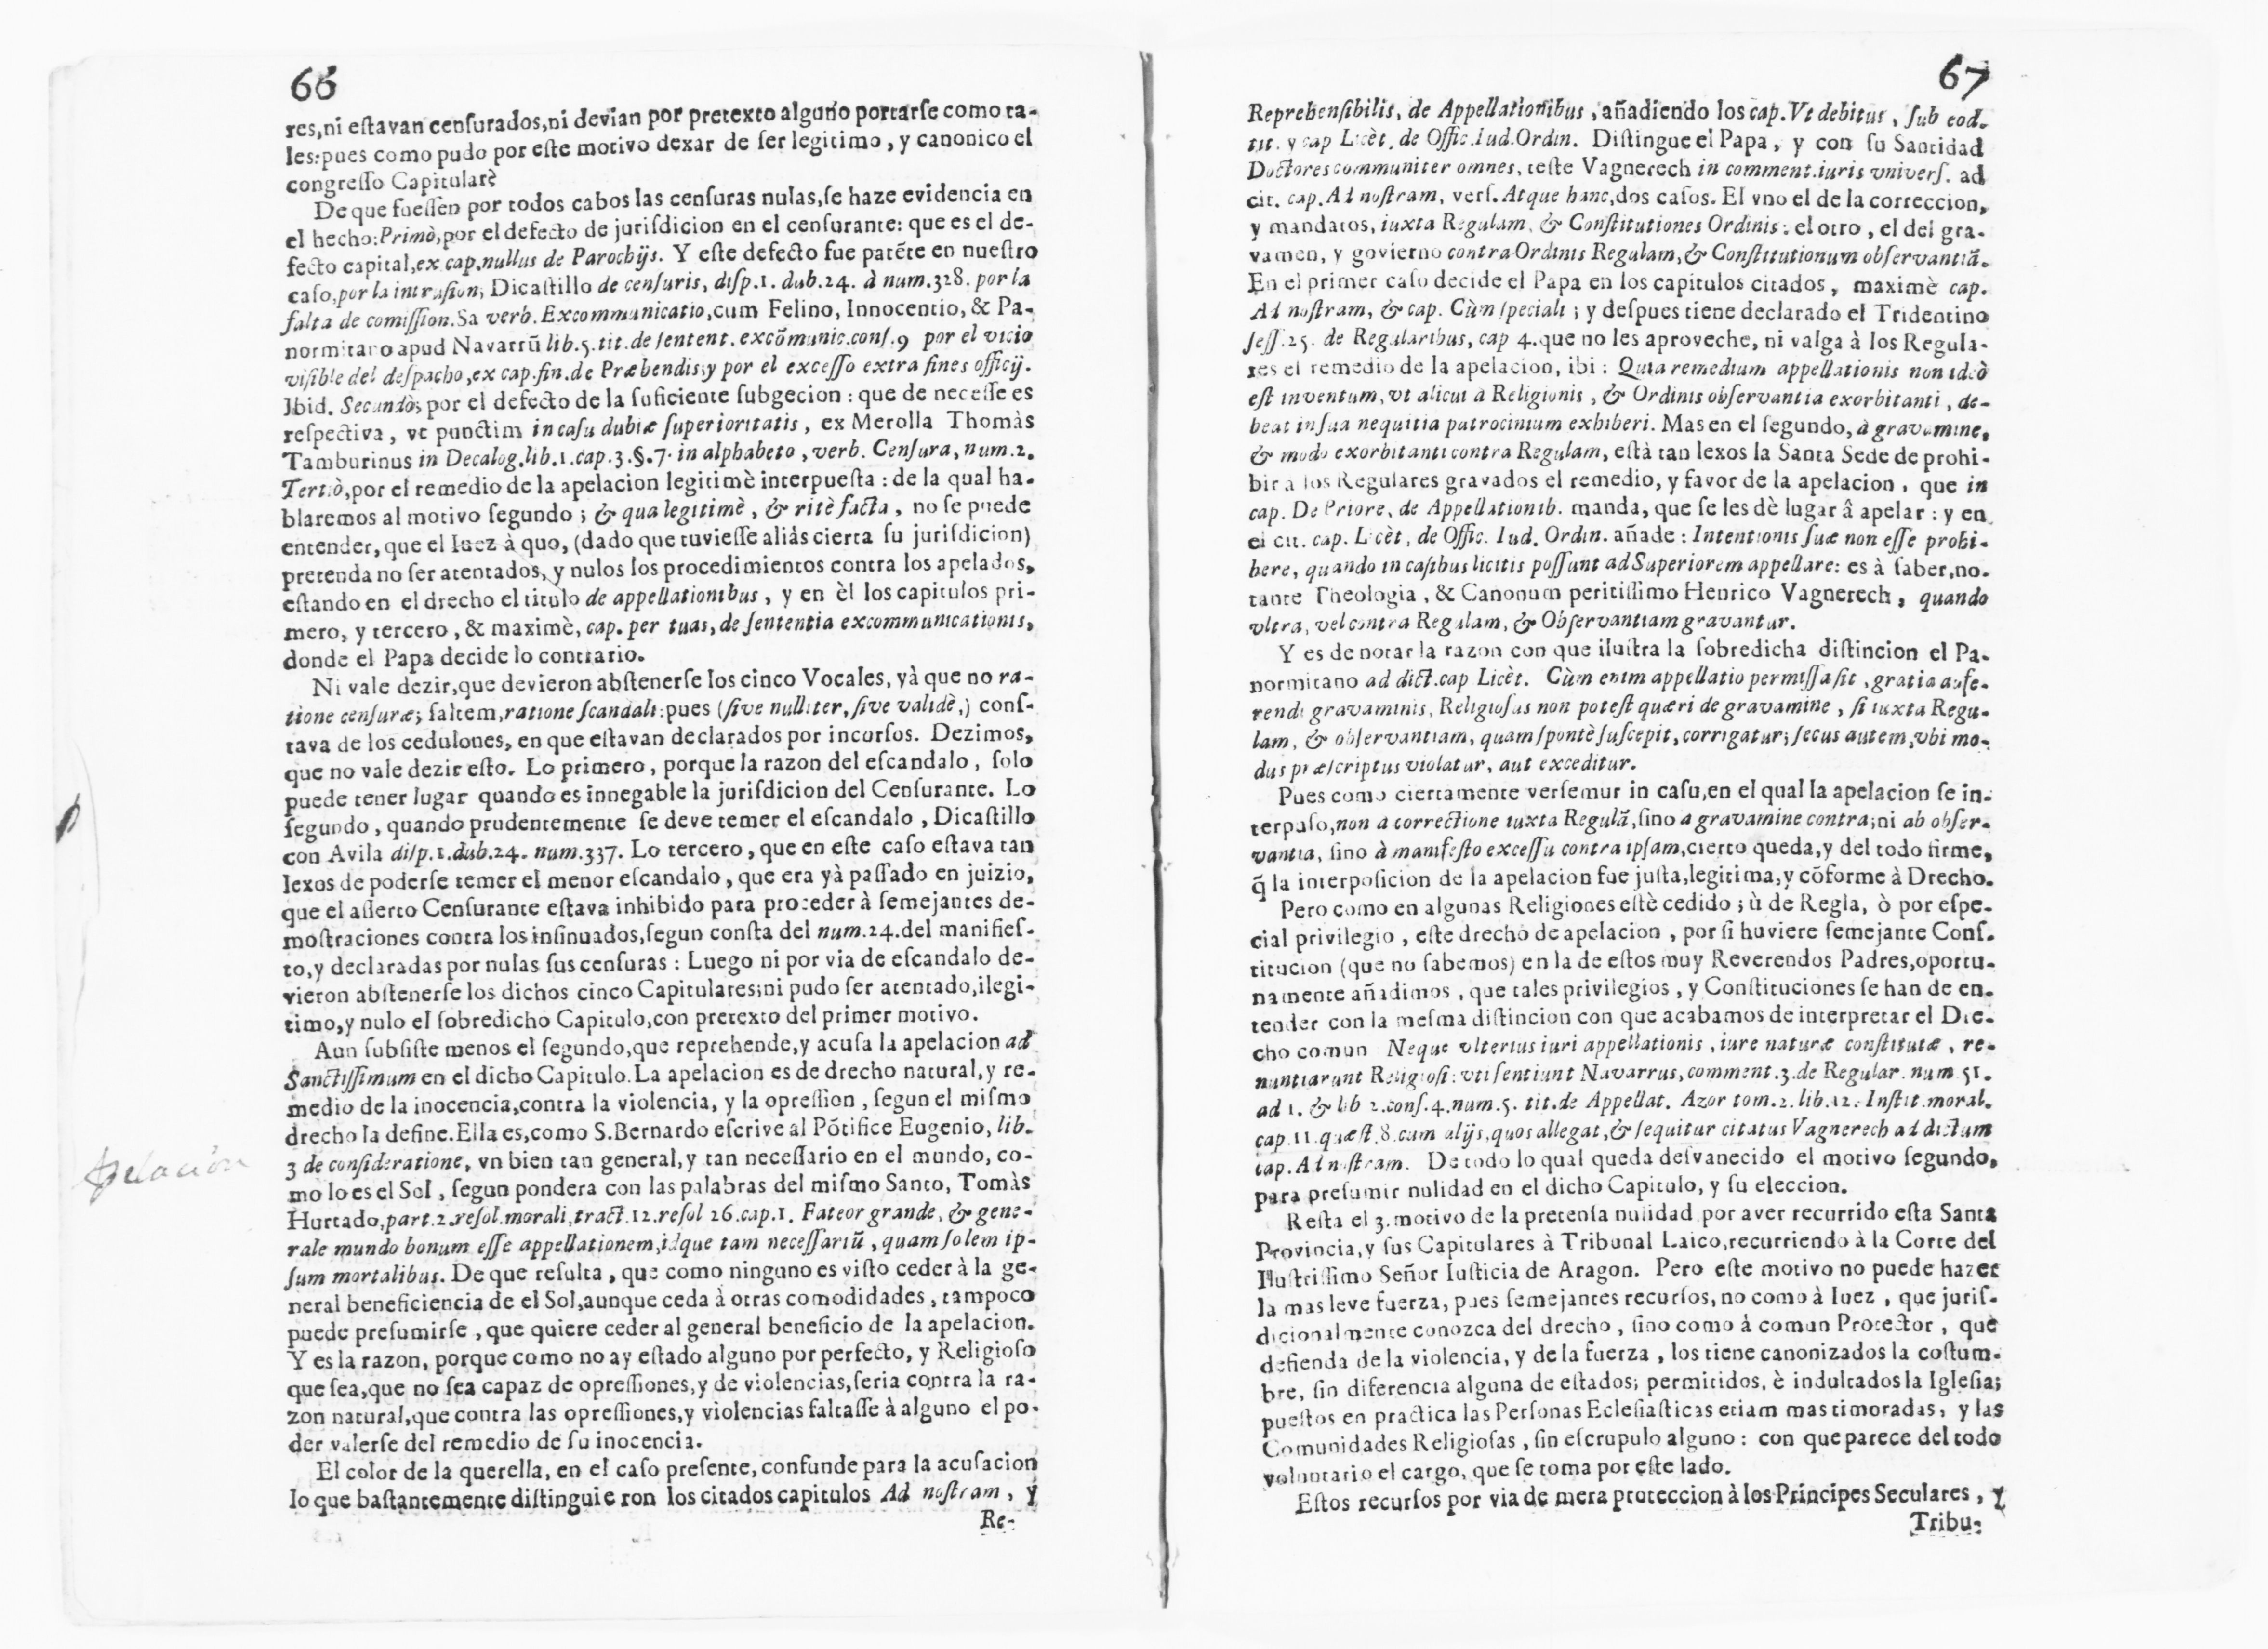 66
res,ni eſtavan cenſurados,ni devian por pretexto alguno portarſe como ta-
les:pues como pudo por eſte motivo dexar de ſer legitimo, y canonico el
congreſſo Capitularè
De que fueſſen por todos cabos las cenſuras nulas,ſe haze evidencia en
el hecho:Primò,por el defecto de juriſdicion en el cenſurante: que es el de-
fecto capital,ex cap.nullus de Parochijs. Y eſte defecto fue patẽte en nueſtro
caſo,por la intruſion, Dicaſtillo de cenſuris, diſp.1. dub.24. à num.328. por la
falta de comiſſion.Sa verb. Excommunicatio,cum Felino, Innocentio, & Pa-
normitano apud Navarrũ lib.5.tit.de ſentent. excõmunic.conſ.9 por el vicio
viſible del deſpacho,ex cap.fin.de Præbendis;y por el exceſſo extra fines officij.
Ibid. Secundò; por el defecto de la ſuficiente ſubgecion: que de neceſſe es
reſpectiva, vt punctim in caſu dubiæ ſuperioritatis, ex Merolla Thomàs
Tamburinus in Decalog.lib.1.cap.3.§.7. in alphabeto, verb. Cenſura, num.2.
Tertiò,por el remedio de la apelacion legitimè interpueſta: de la qual ha-
blaremos al motivo ſegundo; & qua legitimè, & ritè facta, no ſe puede
entender, que el Iuez à quo, (dado que tuvieſſe aliàs cierta ſu juriſdicion)
pretenda no ſer atentados, y nulos los procedimientos contra los apelados,
eſtando en el drecho el titulo de appellationibus, y en èl los capitulos pri-
mero, y tercero, & maximè, cap. per tuas, de ſententia excommunicationis,
donde el Papa decide lo contrario.
Ni vale dezir,que devieron abſtenerſe los cinco Vocales, yà que no ra-
tione cenſuræ; ſaltem,ratione ſcandali:pues (ſive nulliter, ſive validè,) conſ-
tava de los cedulones, en que eſtavan declarados por incurſos. Dezimos,
que no vale dezir eſto. Lo primero, porque la razon del eſcandalo, ſolo
puede tener lugar quando es innegable la juriſdicion del Cenſurante. Lo
ſegundo, quando prudentemente ſe deve temer el eſcandalo, Dicaſtillo
con Avila diſp.1.dub.24. num.337. Lo tercero, que en eſte caſo eſtava tan
lexos de poderſe temer el menor eſcandalo, que era yà paſſado en juizio,
que el aſſerto Cenſurante eſtava inhibido para proceder à ſemejantes de-
moſtraciones contra los inſinuados,ſegun conſta del num.24.del manifieſ-
to,y declaradas por nulas ſus cenſuras: Luego ni por via de eſcandalo de-
vieron abſtenerſe los dichos cinco Capitulares;ni pudo ſer atentado,ilegi-
timo,y nulo el ſobredicho Capitulo,con pretexto del primer motivo.
Aun ſubſiſte menos el ſegundo,que reprehende,y acuſa la apelacion ad
Sanctiſſimum en el dicho Capitulo.La apelacion es de drecho natural,y re-
medio de la inocencia,contra la violencia, y la opreſſion, ſegun el miſmo
drecho la define.Ella es,como S.Bernardo eſcrive al Põtifice Eugenio, lib.
apelación
3 de conſideratione, vn bien tan general,y tan neceſſario en el mundo, co-
mo lo es el Sol, ſegun pondera con las palabras del miſmo Santo, Tomàs
Hurtado,part.2.reſol.morali,tract.12.reſol 26.cap.1. Fateor grande, & gene-
rale mundo bonum eſſe appellationem,idque tam neceſſariũ, quam ſolem ip-
ſum mortalibus. De que reſulta, que como ninguno es viſto ceder à la ge-
neral beneficiencia de el Sol,aunque ceda à otras comodidades, tampoco
puede preſumirſe, que quiere ceder al general beneficio de la apelacion.
Y es la razon, porque como no ay eſtado alguno por perfecto, y Religioſo
que ſea,que no ſea capaz de opreſſiones,y de violencias,ſeria contra la ra-
zon natural,que contra las opreſſiones,y violencias faltaſſe à alguno el po-
der valerſe del remedio de ſu inocencia.
El color de la querella, en el caſo preſente, confunde para la acuſacion
lo que baſtantemente diſtinguieron los citados capitulos Ad noſtram, y
Re-
67
Reprehenſibilis, de Appellationibus, añadiendo los cap. Vt debitus, ſub eod.
tit. y cap Licèt, de Offic.Iud.Ordin. Diſtingue el Papa, y con ſu Santidad
Doctores communiter omnes, teſte Vagnerech in comment.iuris vniverſ. ad
cit. cap.Ad noſtram, verſ. Atque hanc,dos caſos. El vno el de la correccion,
y mandatos, iuxta Regulam, & Conſtitutiones Ordinis: el otro, el del gra-
vamen, y govierno contra Ordinis Regulam,& Conſtitutionum obſervantiã.
En el primer caſo decide el Papa en los capitulos citados, maximè cap.
Ad noſtram, & cap. Cùm ſpeciali; y deſpues tiene declarado el Tridentino
ſeſſ.25. de Regularibus, cap 4.que no les aproveche, ni valga à los Regula-
res el remedio de la apelacion, ibi: Quia remedium appellationis non ideò
eſt inventum, vt alicui à Religionis, & Ordinis obſervantia exorbitanti, de-
beat in ſua nequitia patrocinium exhiberi. Mas en el ſegundo, à gravamine,
& modo exorbitanti contra Regulam, eſtà tan lexos la Santa Sede de prohi-
bir a los Regulares gravados el remedio, y favor de la apelacion, que in
cap. De Priore, de Appellationib. manda, que ſe les dè lugar â apelar: y en
el cit. cap. Licèt, de Offic. Iud. Ordin. añade: Intentionis ſuæ non eſſe prohi-
bere, quando in caſibus licitis poſſunt ad Superiorem appellare: es à ſaber,no-
tante Theologia, & Canonum peritiſſimo Henrico Vagnerech, quando
vltra, vel contra Regulam, & Obſervantiam gravantur.
Y es de notar la razon con que iluſtra la ſobredicha diſtincion el Pa-
normitano ad dict.cap Licèt. Cùm enim appellatio permiſſa ſit, gratia aufe-
rendi gravaminis, Religioſus non poteſt quæri de gravamine, ſi iuxta Regu-
lam, & obſervantiam, quam ſpontè ſuſcepit, corrigatur; ſecus autem,vbi mo-
dus præſcriptus violatur, aut exceditur.
Pues como ciertamente verſemur in caſu,en el qual la apelacion ſe in-
terpuſo,non à correctione iuxta Regulã,ſino à gravamine contra;ni ab obſer-
vantia, ſino à manifeſto exceſſu contra ipſam,cierto queda,y del todo firme,
q̃ la interpoſicion de la apelacion fue juſta,legitima,y cõforme à Drecho.
Pero como en algunas Religiones eſtè cedido; ù de Regla, ò por eſpe-
cial privilegio, eſte drecho de apelacion, por ſi huviere ſemejante Conſ-
titucion (que no ſabemos) en la de eſtos muy Reverendos Padres,oportu-
namente añadimos, que tales privilegios, y Conſtituciones ſe han de en-
tender con la meſma diſtincion con que acabamos de interpretar el Dre-
cho comun Neque vlterius iuri appellationis, iure naturæ conſtitutæ, re-
nuntiarunt Religioſi: vti ſentiunt Navarrus, comment.3.de Regular. num 51.
ad 1. & lib 2.conſ.4.num.5. tit.de Appellat. Azor tom.2.lib.12. Inſtit.moral.
cap.11.quæſt.8.cum alijs,quos allegat,& ſequitur citatus Vagnerech ad dictum
cap. Ad noſtram. De todo lo qual queda deſvanecido el motivo ſegundo,
para preſumir nulidad en el dicho Capitulo, y ſu eleccion.
Reſta el 3.motivo de la pretenſa nulidad por aver recurrido eſta Santa
Provincia,y ſus Capitulares à Tribunal Laico,recurriendo à la Corte del
Iluſtriſſimo Señor Iuſticia de Aragon. Pero eſte motivo no puede hazer
la mas leve fuerza, pues ſemejantes recurſos, no como à Iuez, que juriſ-
dicionalmente conozca del drecho, ſino como à comun Protector, que
defienda de la violencia, y de la fuerza, los tiene canonizados la coſtum-
bre, ſin diferencia alguna de eſtados; permitidos, è indultados la Igleſia;
pueſtos en practica las Perſonas Ecleſiaſticas etiam mas timoradas, y las
Comunidades Religioſas, ſin eſcrupulo alguno: con que parece del todo
voluntario el cargo, que ſe toma por eſte lado.
Eſtos recurſos por via de mera proteccion à los Principes Seculares, y
Tribu-